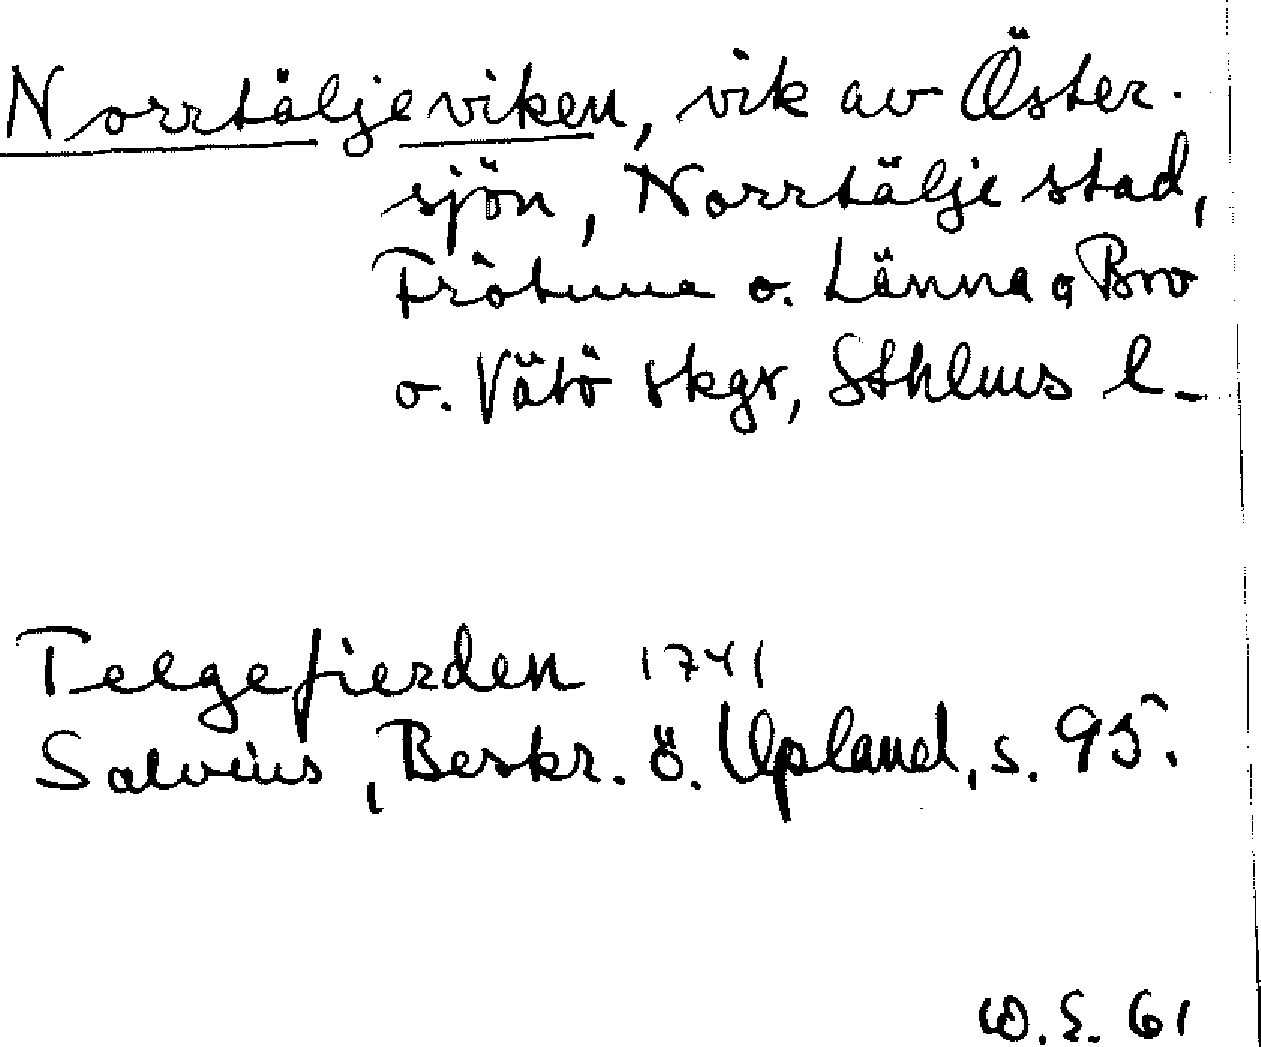 Norrtäljeviken, vik av Öster-
sjön, Norrtälje stad,
Frötuna o. Länna o Bro
o. Vätö skgr, Sthlms l.
Telgefierden 1741
Salvius, Beskr. ö. Upland, s. 95.
W.S. 61